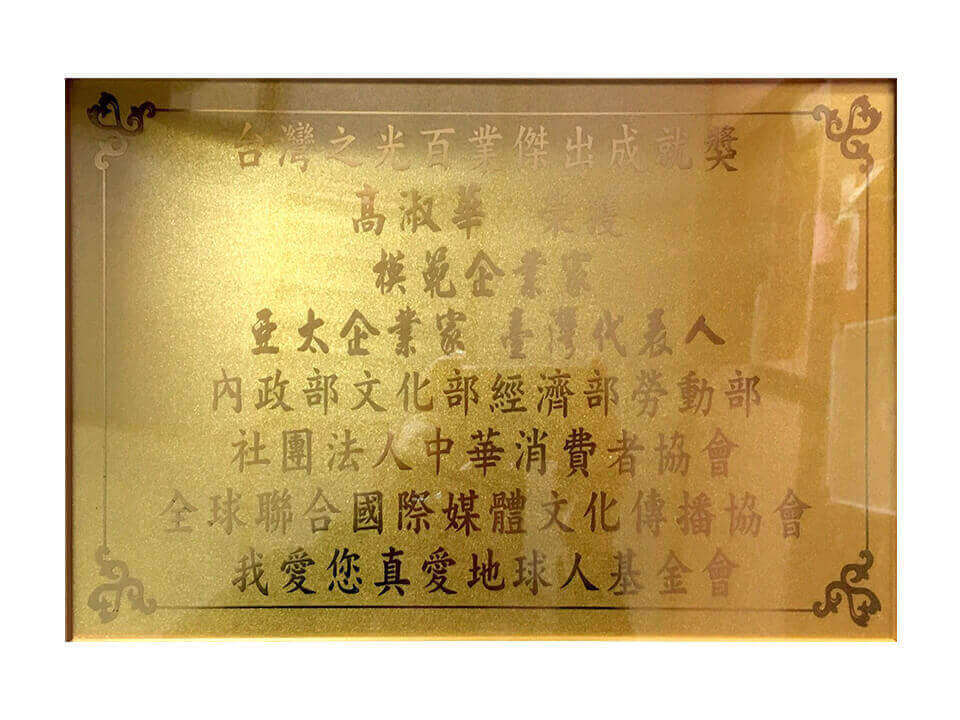 台灣之光百業傑出成就獎
高淑華　榮獲
模範企業家
亞太企業家　臺灣代表人
內政部文化部經濟部勞動部
社團法人中華消費者協會
全球聯合國際媒體文化傳播協會
我愛您真愛地球人基金會